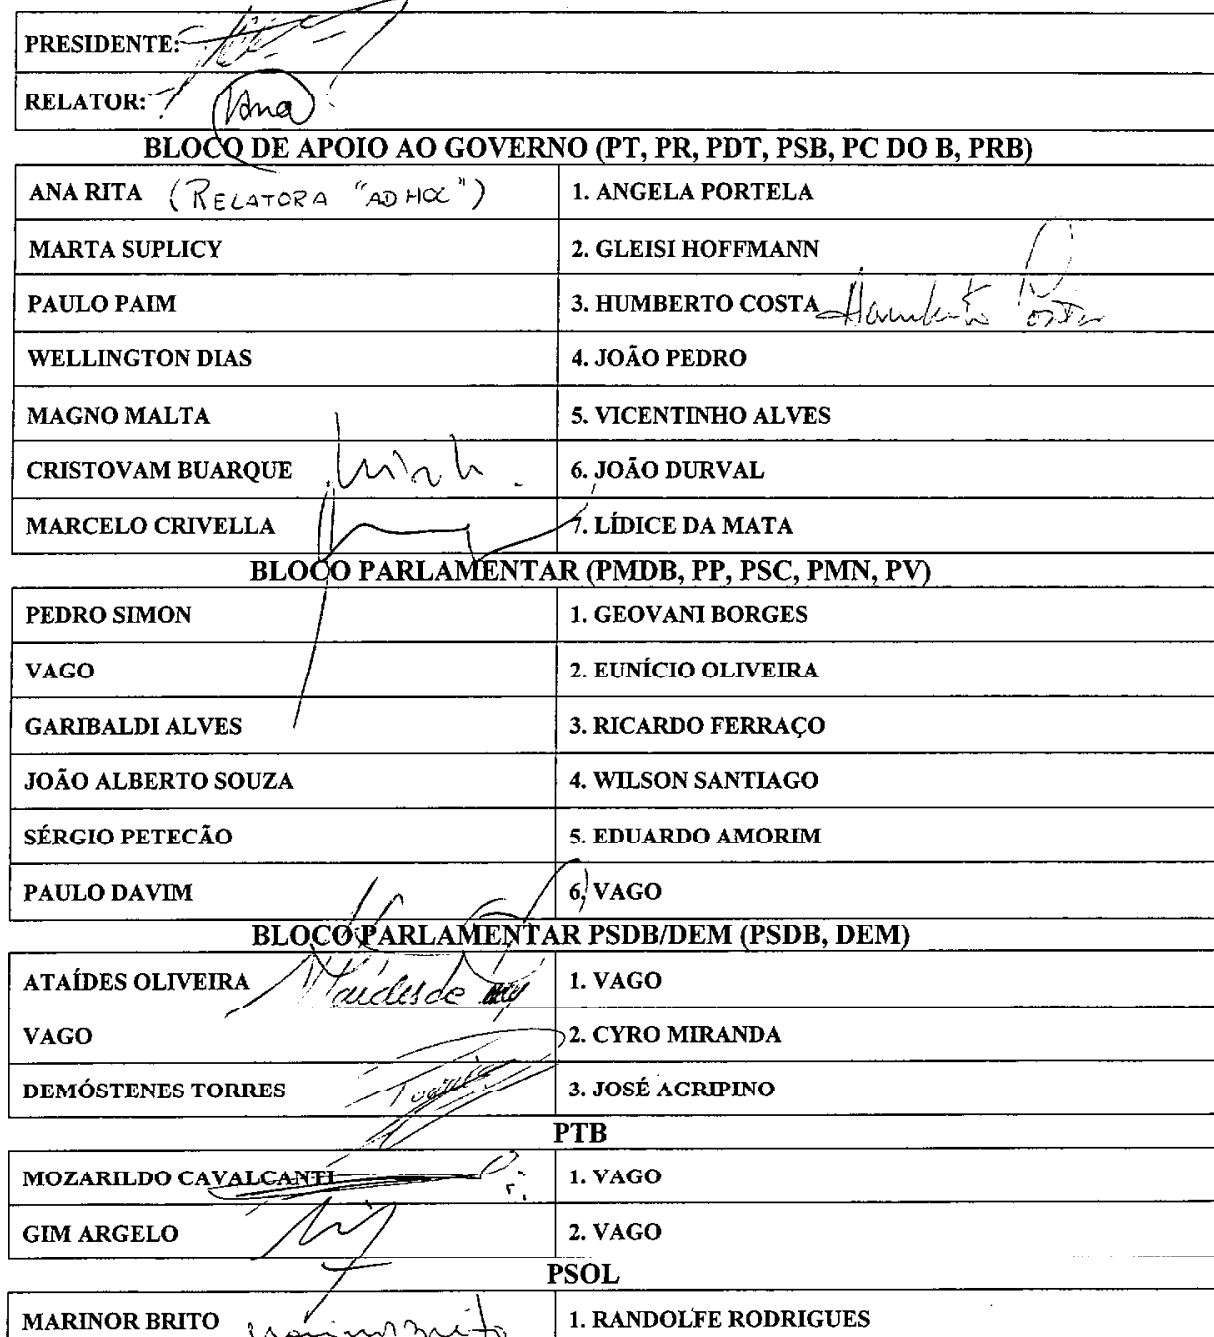 PRESIDENTE:
RELATOR: Ana
BLOCO DE APOIO AO GOVERNO (PT, PR, PDT, PSB, PC DO B, PRB)
ANA RITA (RELATORA "AD HOC") 1. ANGELA PORTELA
MARTA SUPLICY 2. GLEISI HOFFMANN
PAULO PAIM 3. HUMBERTO COSTA Humberto Costa
WELLINGTON DIAS 4. JOÃO PEDRO
MAGNO MALTA 5. VICENTINHO ALVES
CRISTOVAM BUARQUE 6. JOÃO DURVAL
MARCELO CRIVELLA 7. LÍDICE DA MATA
BLOCO PARLAMENTAR (PMDB, PP, PSC, PMN, PV)
PEDRO SIMON 1. GEOVANI BORGES
VAGO 2. EUNÍCIO OLIVEIRA
GARIBALDI ALVES 3. RICARDO FERRAÇO
JOÃO ALBERTO SOUZA 4. WILSON SANTIAGO
SÉRGIO PETECÃO 5. EDUARDO AMORIM
PAULO DAVIM 6. VAGO
BLOCO PARLAMENTAR PSDB/DEM (PSDB, DEM)
ATAÍDES OLIVEIRA 1. VAGO
VAGO 2. CYRO MIRANDA
DEMÓSTENES TORRES 3. JOSÉ AGRIPINO
PTB
MOZARILDO CAVALCANTI 1. VAGO
GIM ARGELO 2. VAGO
PSOL
MARINOR BRITO Marinor Brito 1. RANDOLFE RODRIGUES